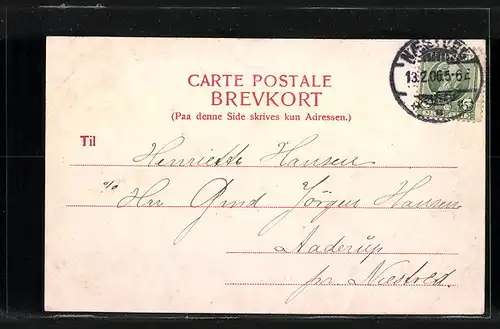 NÆSTVED
13.2.06.5-6 E
5
CARTE POSTALE
BREVKORT
(Paa denne Side skrives kun Adressen.)
Til
Henriette Hansen
c/o Hr Gmd Jörgen Hansen
Aaderup
pr. Næstved